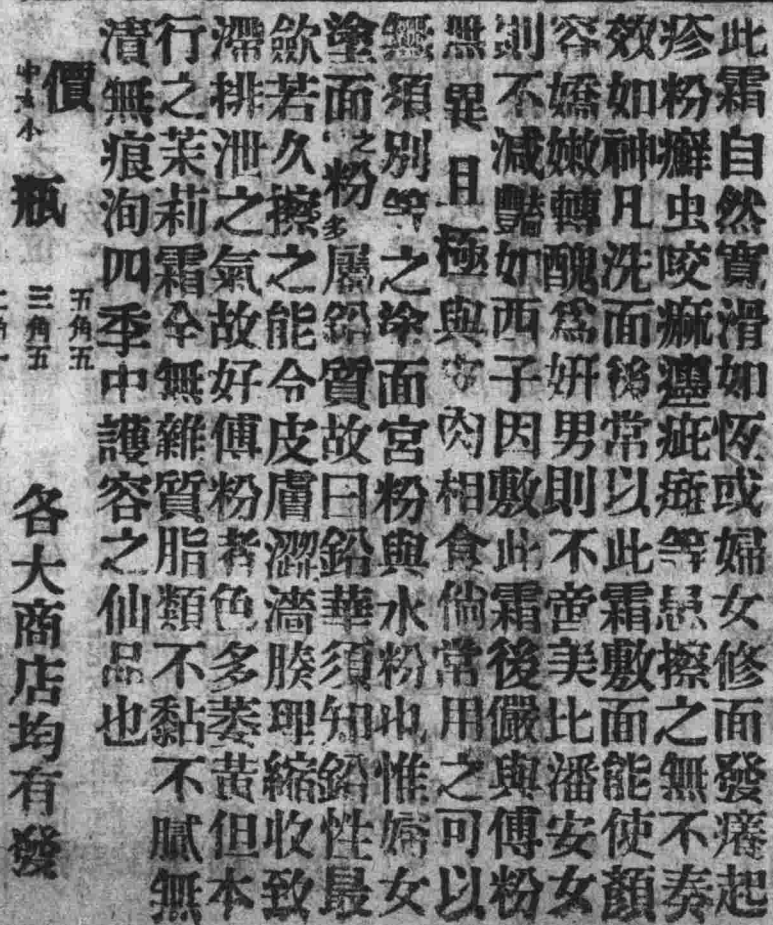 此霜自然寬滑如恆或婦女修面發癢起
疹粉癬虫咬痲瘋疵斑等患擦之無不奏
效如神凡洗面後常以此霜敷面能使顏
容嬌嫩轉醜爲妍男則不啻美比潘安女
則不減豔如西子因敷此霜後儼與傅粉
無異且極與肉相食倘常用之可以
無須別等之塗面宮粉與水粉也惟婦女
塗面之粉多屬鉛質故曰鉛華須知鉛性最
歛若久擦之能令皮膚澀濇腠理縮收致
滯排泄之氣故好傅粉者色多萎黃但本
行之茉莉霜全無雜質脂類不黏不膩無
漬無痕洵四季中護容之仙品也
價 中 小 瓶 五角五 三角五 各大商店均有發